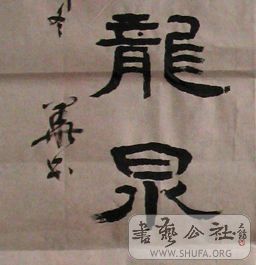 龍泉
冬
書藝公社
WWW.SHUFA.ORG